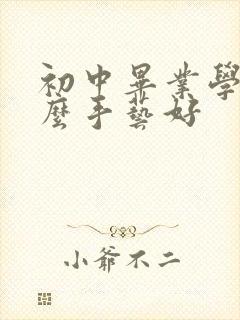 初中畢業學
麼手藝好
小爺不二